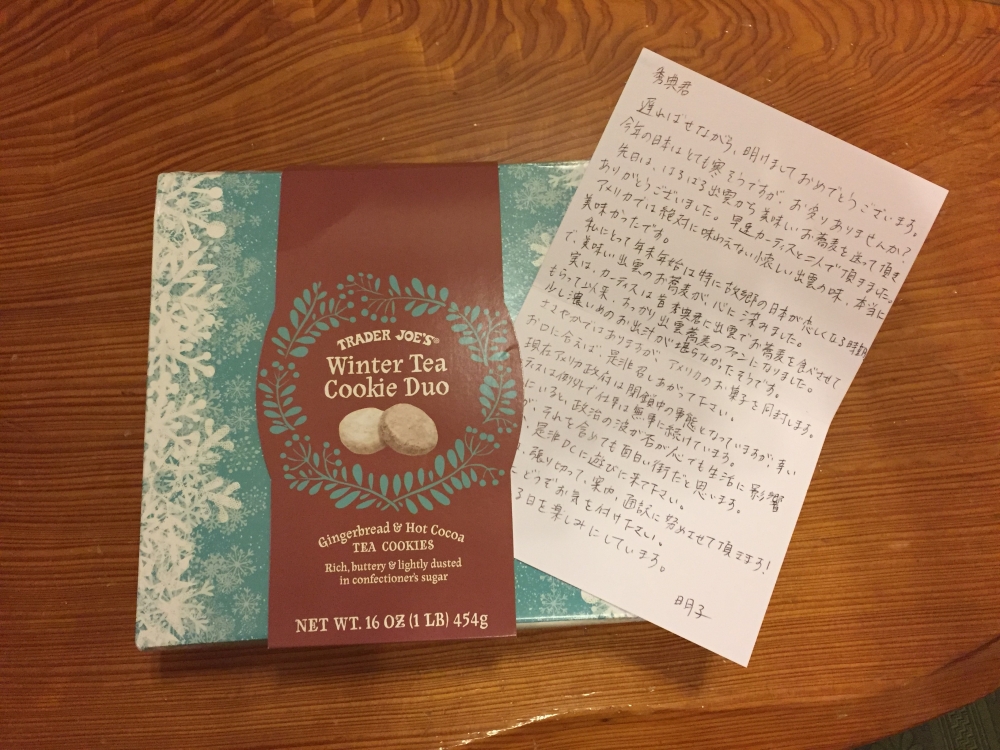 TRADER JOE'S®
Winter Tea
Cookie Duo
Gingerbread & Hot Cocoa
TEA COOKIES
Rich, buttery & lightly dusted
in confectioner's sugar
NET WT. 16 OZ (1 LB) 454g
秀典君
遅ればせながら、明けましておめでとうございます。
今年の日本はとても寒そうですが、お変りありませんか?
先日は、はるばる出雲から美味しいお蕎麦を送って頂き
ありがとうございました。早速カーティスと二人で頂きました。
アメリカでは絶対に味わえない懐しい出雲の味、本当に
美味かったです。
私にとって年末年始は特に故郷の日本が恋しくなる時期
で、美味い出雲のお蕎麦が、心に沫みました。
実は、カーティスは昔秀典君に出雲でお蕎麦を食べさせて
もらって以来、すっかり出雲蕎麦のファンになりました。
少し濃いめのお出汁が堪らなかったそうです。
ささやかではありますが、アメリカのお菓子を同封します。
お口に合えば、是非召しあがって下さい。
現在アメリカ政府は閉鎖中の事態となっていますが、幸い
ティスは例外で仕事は無事に続けています。
にいると、政治の波が否が応でも生活に影響
が、それを含めても面白い街だと思います。
是非DCに遊びに来て下さい。
張り切って、案内、通訳に努めさせて頂きます!
どうぞお気を付け下さい。
る日を楽しみにしています。
明子